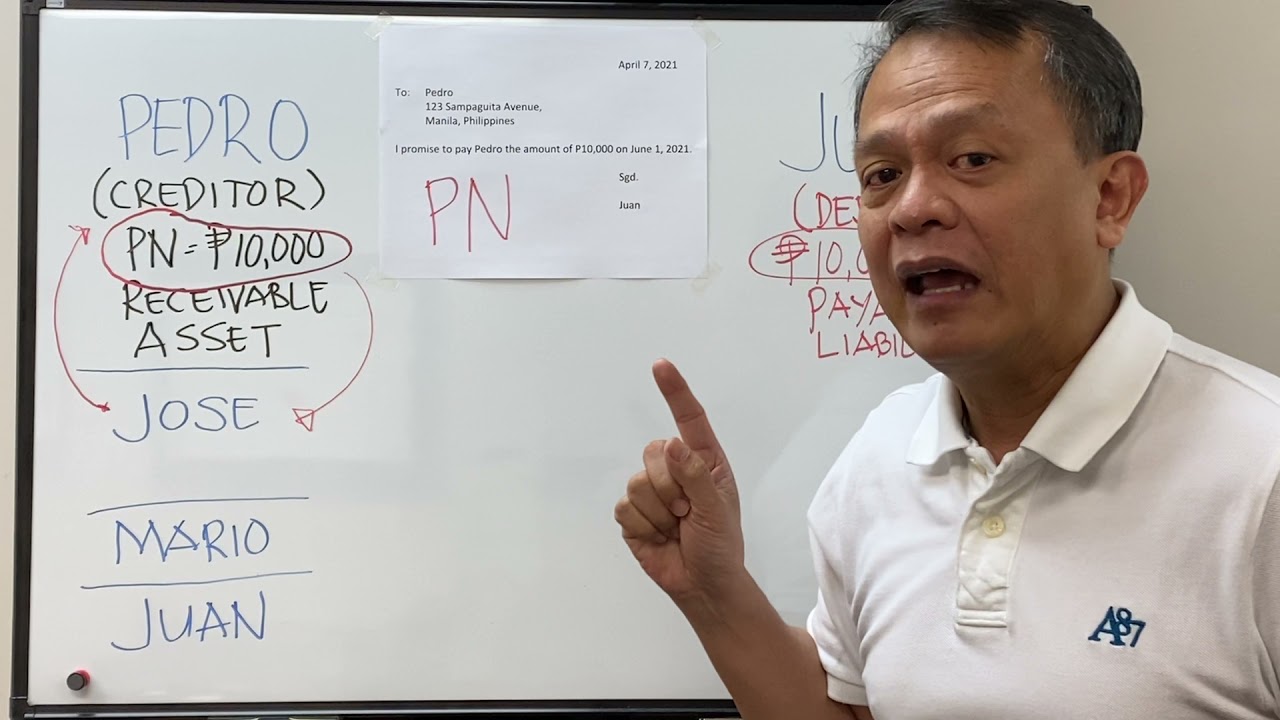 PEDRO
(CREDITOR)
PN = ₱10,000
RECEIVABLE
ASSET
JOSE
MARIO
JUAN
April 7, 2021
To: Pedro
123 Sampaguita Avenue,
Manila, Philippines
I promise to pay Pedro the amount of P10,000 on June 1, 2021.
Sgd.
Juan
PN
A87